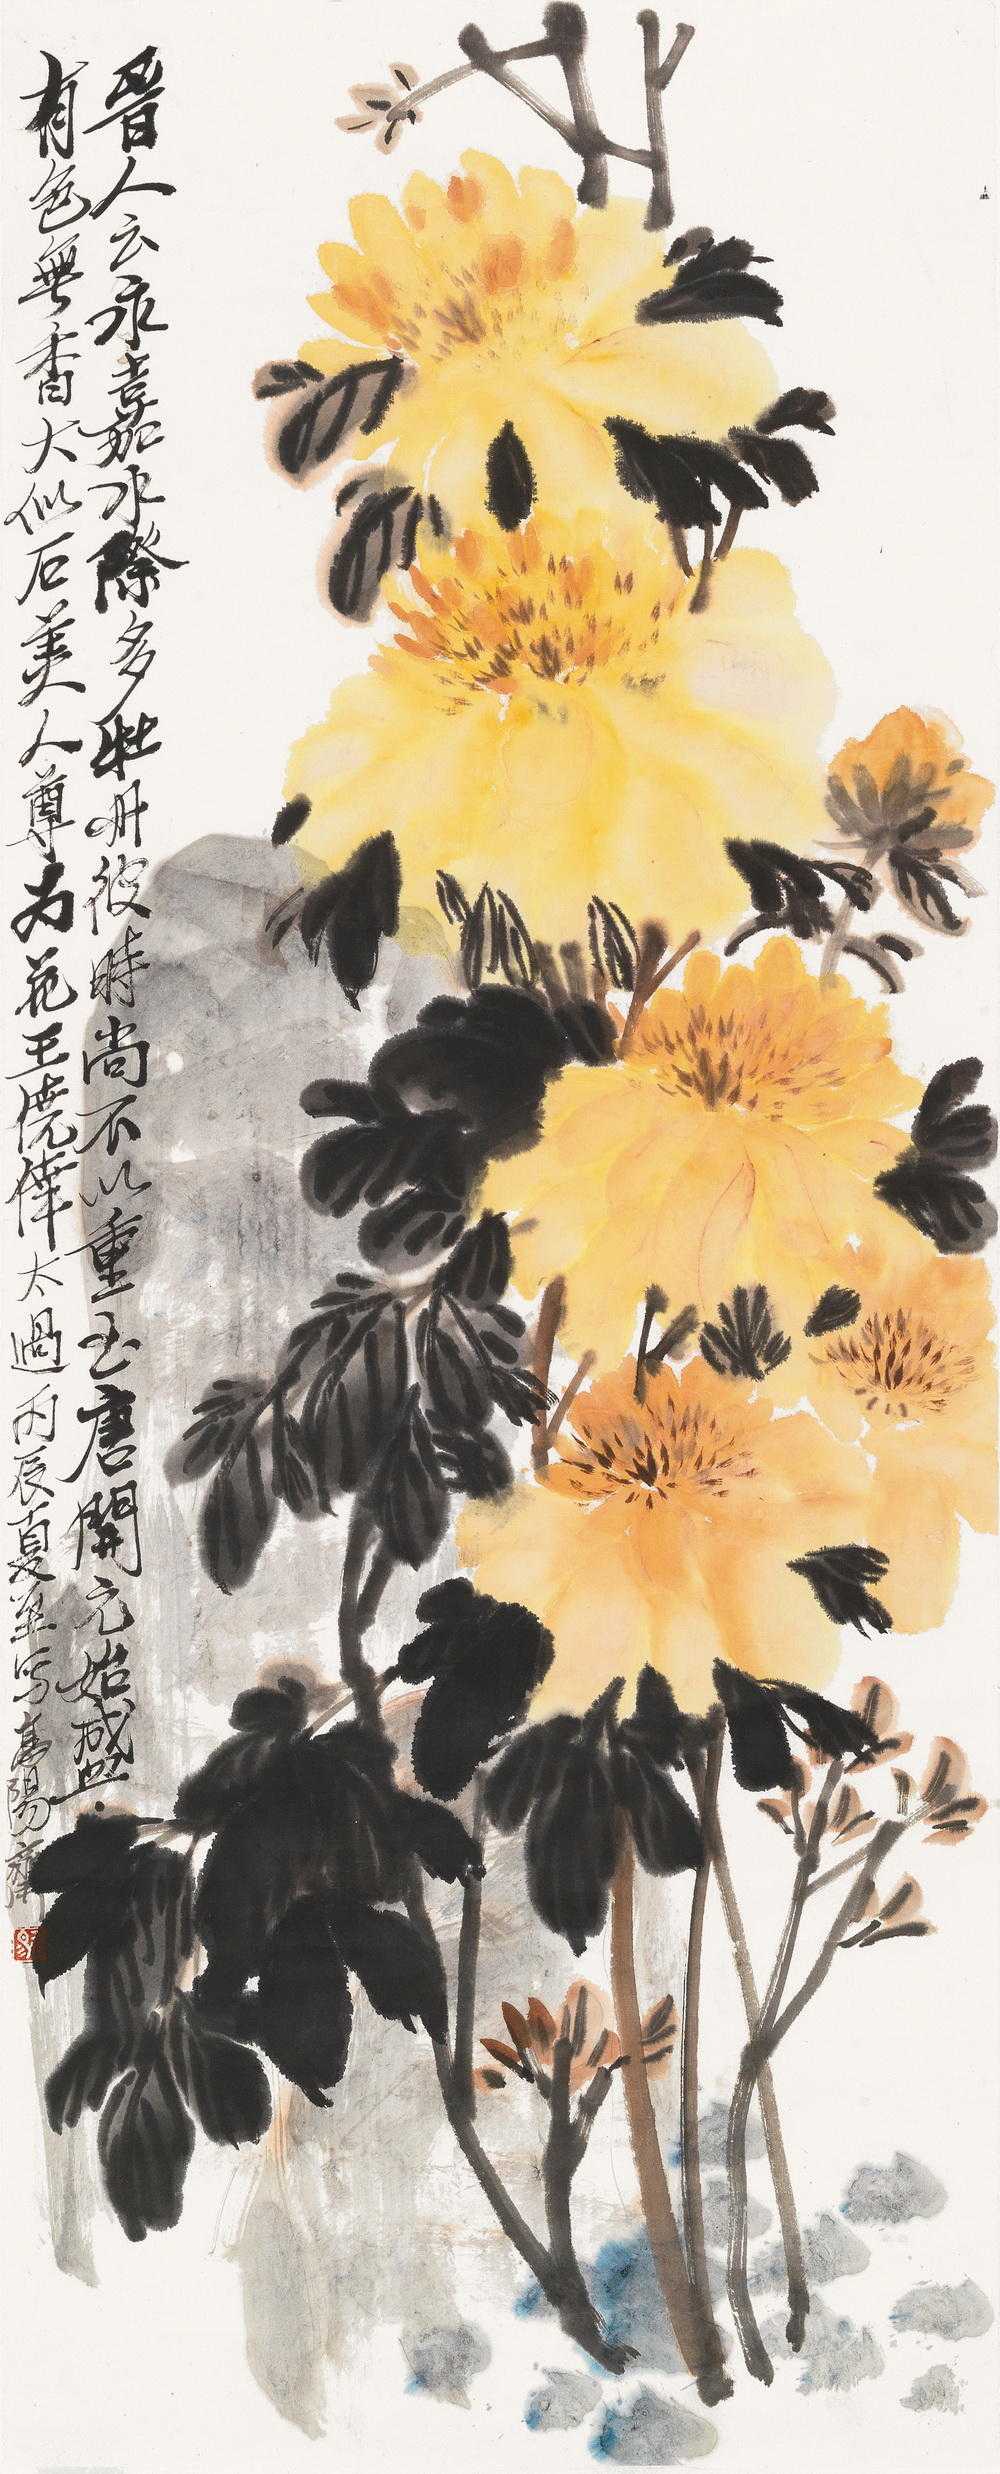 晋人云永嘉水際多牡丹彼時尚不以重至唐開元始盛
有色無香大似石美人人尊为花王僥倖太過丙辰夏至写高陽齊